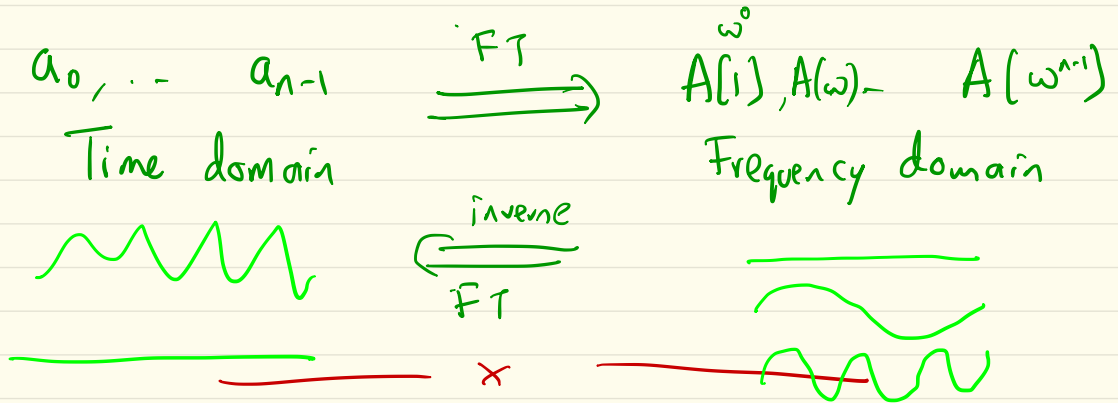 ω⁰
a₀, .. - aₙ₋₁ FT A[1], A(ω) - A(ωⁿ⁻¹)
Time domain Frequency domain
inverse
FT
×